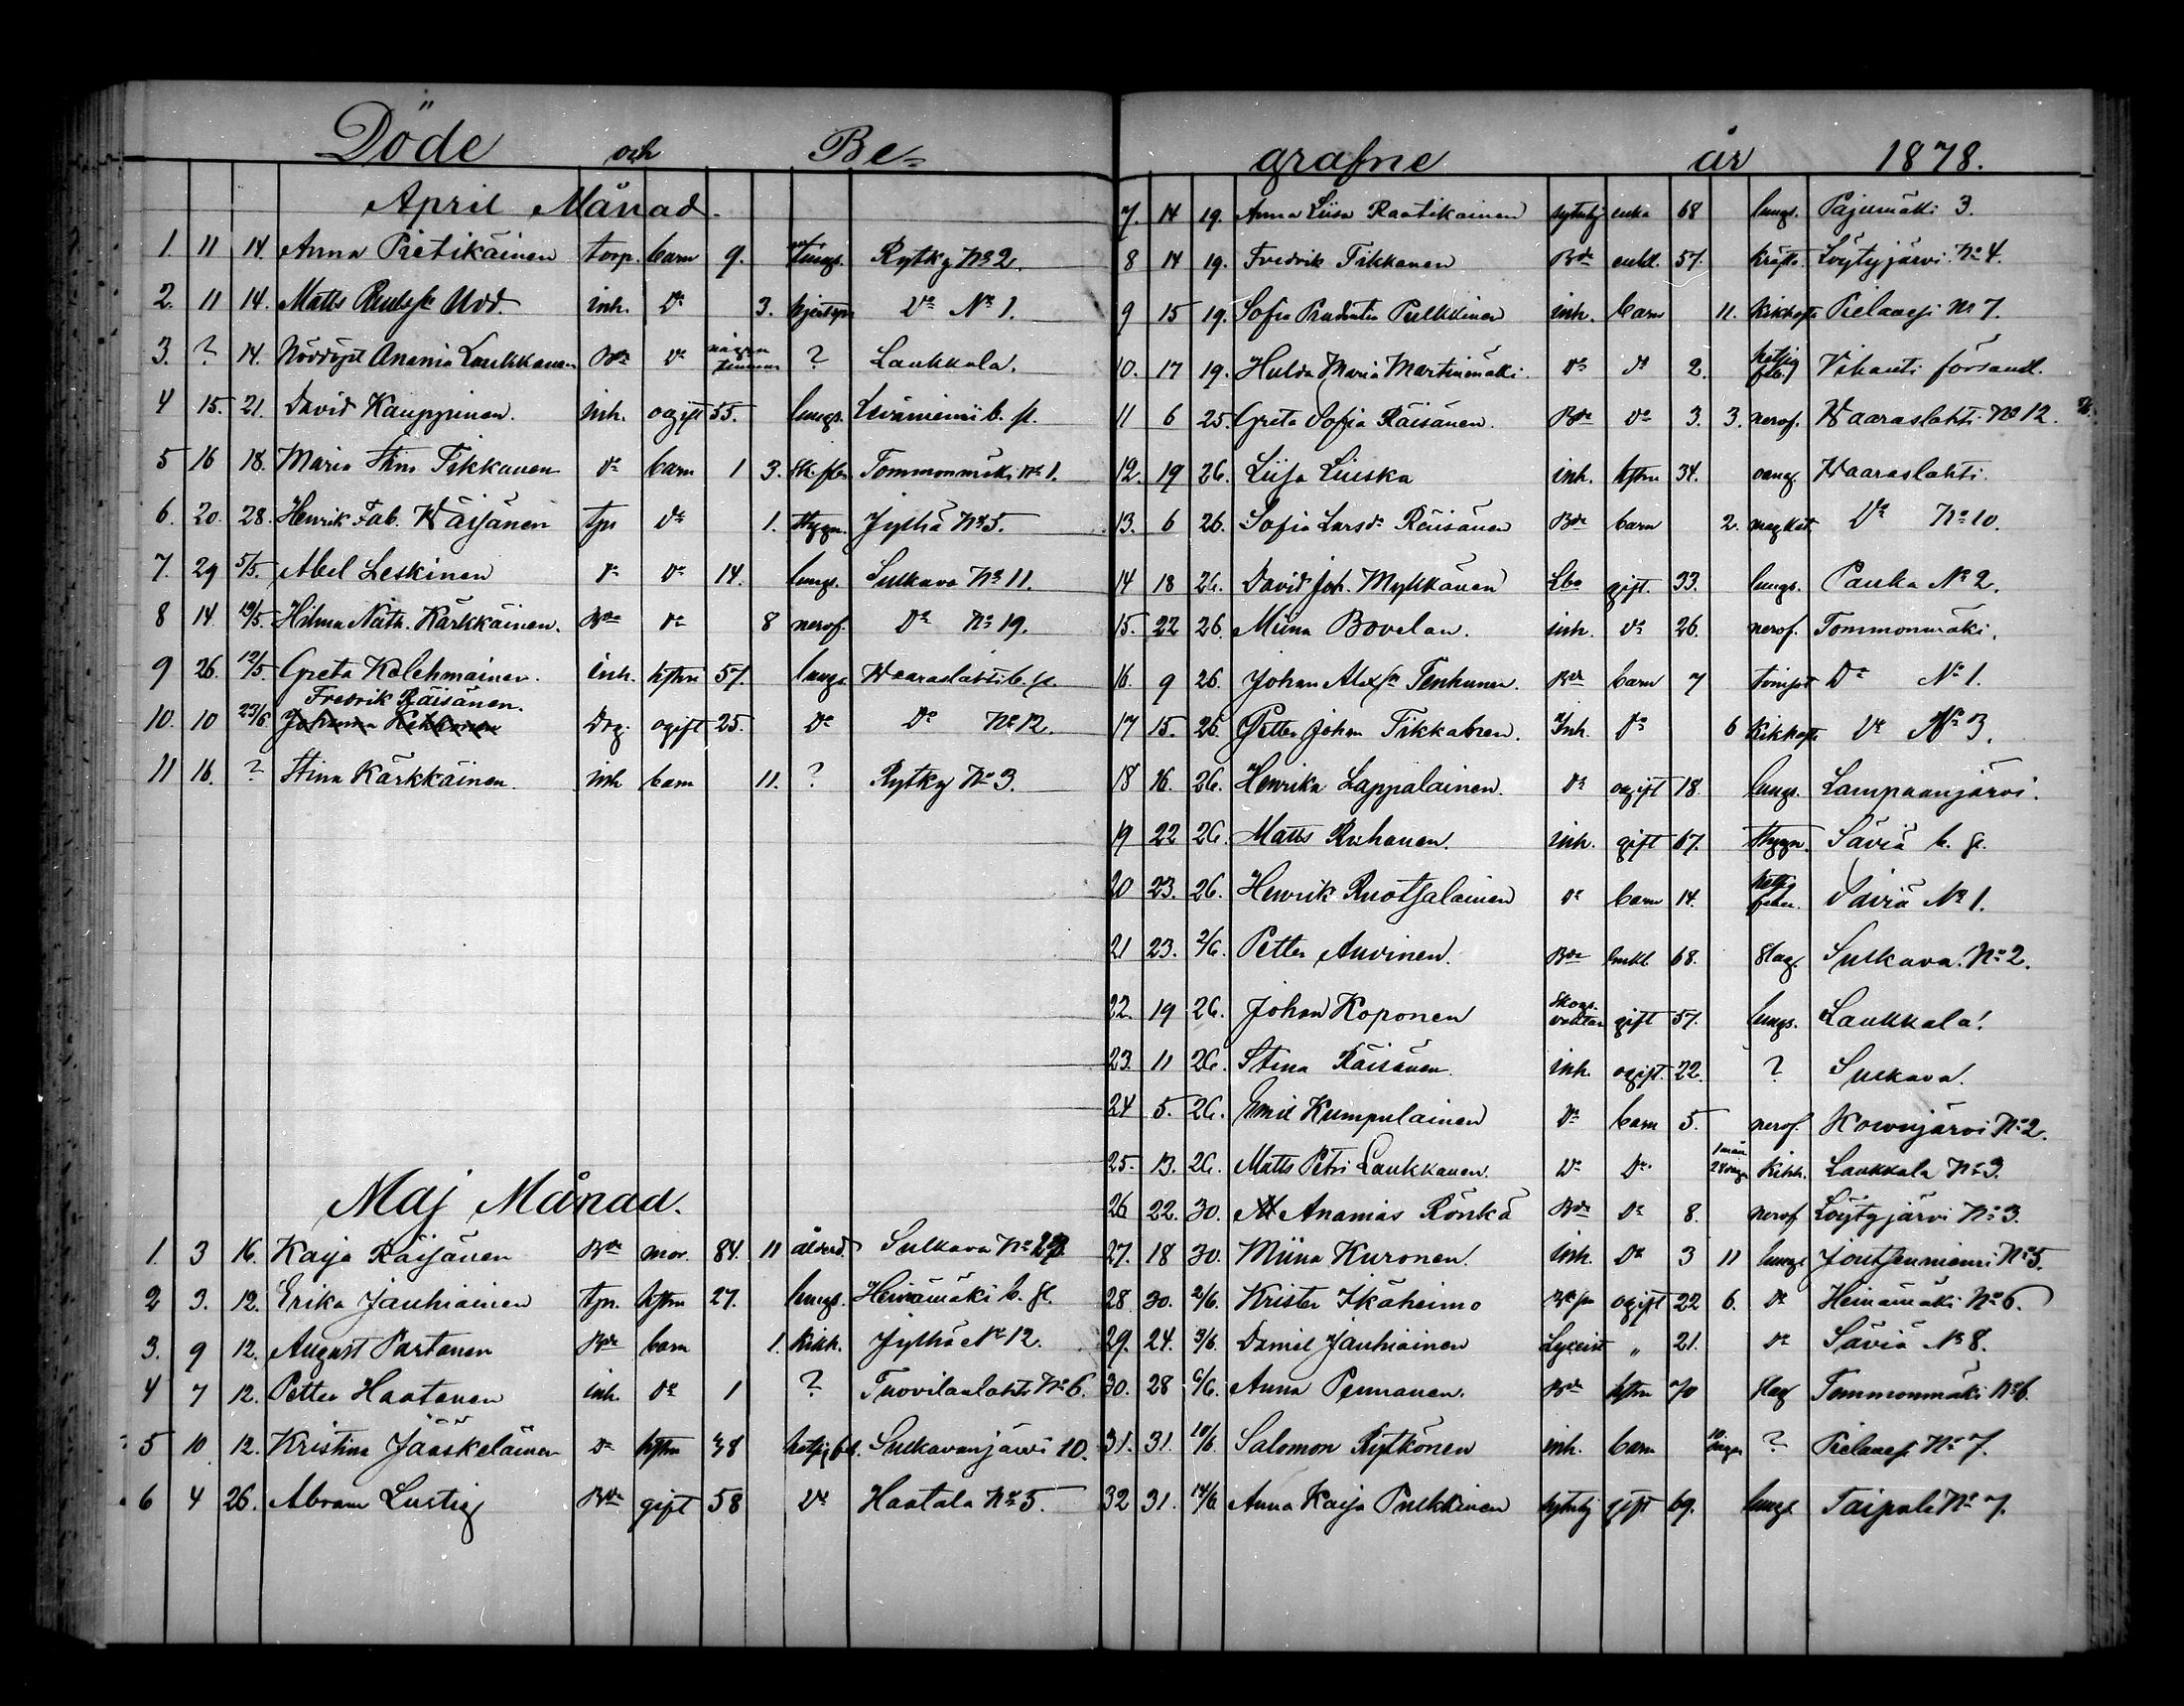 Döde och Be=
April Månad.
1. 11 14. Anna Pietikäinen torp. barn 9. lungs. Rytky No 2.
2. 11 14. Matts Udd. inh. Do 3. Do No 1.
3. ? 14. Nöddöpt Anania Laukkanen Bde Do några timmar ? Laukkala.
4 15. 21. David Kauppinen. inh. ogift 55. lungs. Leväniemi b. st.
5 16 18. Maria Stina Tikkanen Do barn 1 3. Tommonmäki No 1.
6. 20. 28. Henrik Fab. Wäisänen tpr Do 1. Jylhä No 5.
7. 29 5/5. Abel Leskinen Do Do 14. lungs. Sulkava No 11.
8 14 19/5. Hilma Nath. Kärkkäinen. Bde Do 8 nerof. Do No 19.
9 26. 12/5. Greta Kolehmainen. inh. hstru 57. lungs. Waaraslahti b. st.
Fredrik Räisänen.
10. 10 23/6. Drg. ogift 25. Do Do No 12.
11 16. ? Stina Kärkkäinen. inh barn 11. ? Rytky No 3.
Maj Månad.
1. 3 16. Kaija Räisänen Bde mor. 84. 11 ålderd. Sulkava No
2 3. 12. Erika Jauhiainen tpr. hstru 27. lungs. Heinämäki b. st.
3. 9 12. August Partanen Bde barn 1. kikh. Jylhä No 12.
4 7 12. Petter Haatanen inh. Do 1 ? Tuovilanlahti No 6.
5 10 12. Kristina Jääskeläinen Do hstru 48 hetsig feb. Sulkavanjärvi 10.
6 4 26. Abram Lustig Bde gift 58 Do Haatala No 5.
grafne år 1878.
7. 14 19. Anna Liisa Raatikainen sytnhj enka 68 lungs. Pajumäki 3.
8 14 19. Fredrik Tikkanen Bde enkl. 57. kräfta. Löytyjärvi. No 4.
9 15 19. Sofia Prudentia Pulkkinen inh. barn 11. kikhosta Pielavesi No 7.
10. 17 19. Hulda Maria Martinmäki. Do Do 2. hetsig feb. Vihanti församl.
11 6 25. Greta Sofia Räisänen. Bde Do 3. 3. nerof. Waaraslahti No 12.
12. 19 26. Liisa Liuska inh. hstru 34. Waaraslahti.
13. 6 26. Sofia Larsdr Räisänen Bde barn 2. magkat. Do No 10.
14 18 26. David Joh. Mykkänen Lbo gift. 33. lungs. Pauka No 2.
15. 22 26. Miina Bovelan. inh. Do 26. nerof. Tommonmäki.
16. 9 26. Johan Alexsr Tenhunen. Bde barn 7 Do No 1.
17 15. 26. Petter Johan Tikkanen. Inh. Do 6 Kikhosta Do No 3.
18 16. 26. Henrika Lappalainen. Do ogift 18. lungs. Lampaanjärvi.
19 22 26. Matts Ruhanen. inh. gift 67. styggn. Säviä b. st.
20 23. 26. Henrik Ruotsalainen Do barn 14. hetsig feber. Säviä No 1.
21 23. 2/6. Petter Auvinen. Bde enkl. 68. Slag. Sulkava. No 2.
22. 19 26. Johan Koponen Skogs. vaktar gift 57. lungs. Laukkala.
23. 11 26. Stina Räisänen. inh. ogift. 22. ? Sulkava.
24 5. 26. Emil Kumpulainen Do barn 5. nerof. Koivujärvi No 2.
25. 13. 26. Matts Petri Laukkanen. Do Do. 1 mån kikh. Laukkala No 3.
26 22. 30. Ananias Rönkä Bde Do 8. nerof Löytyjärvi No 3.
27. 18 30. Miina Kuronen. inh. Do 3 11 lungs Joutsenniemi No 5.
28. 30. 2/6. Krister Ikäheimo Bde sn ogift 22 6. Do Heinämäki No 6.
29. 24. 9/6. Daniel Jauhiainen Lyceist " 21. Do Säviä No 8.
30. 28 6/6. Anna Pennanen. Bde hstru 70 slag Tommonmäki No 6.
31. 31. 10/6. Salomon Rytkönen inh. barn 10. dagar ? Pielavesi No 7.
32 31. 14/6 Anna Kaisa Pulkkinen sytnhj gift 69. lungs Taipale No 7.